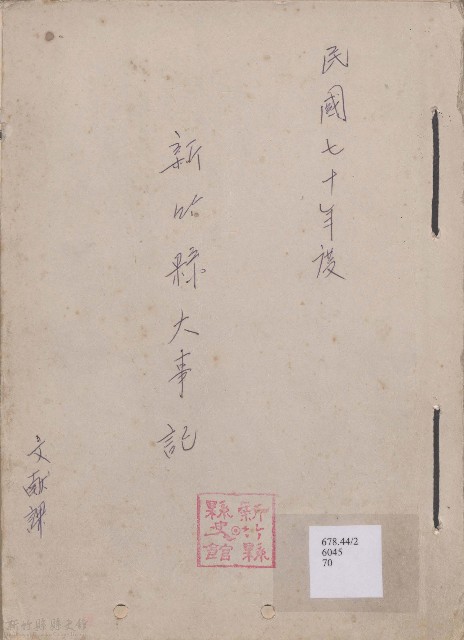 民國七十年度
新竹縣大事記
文獻課
新竹縣
縣史館
678.44/2
6045
70